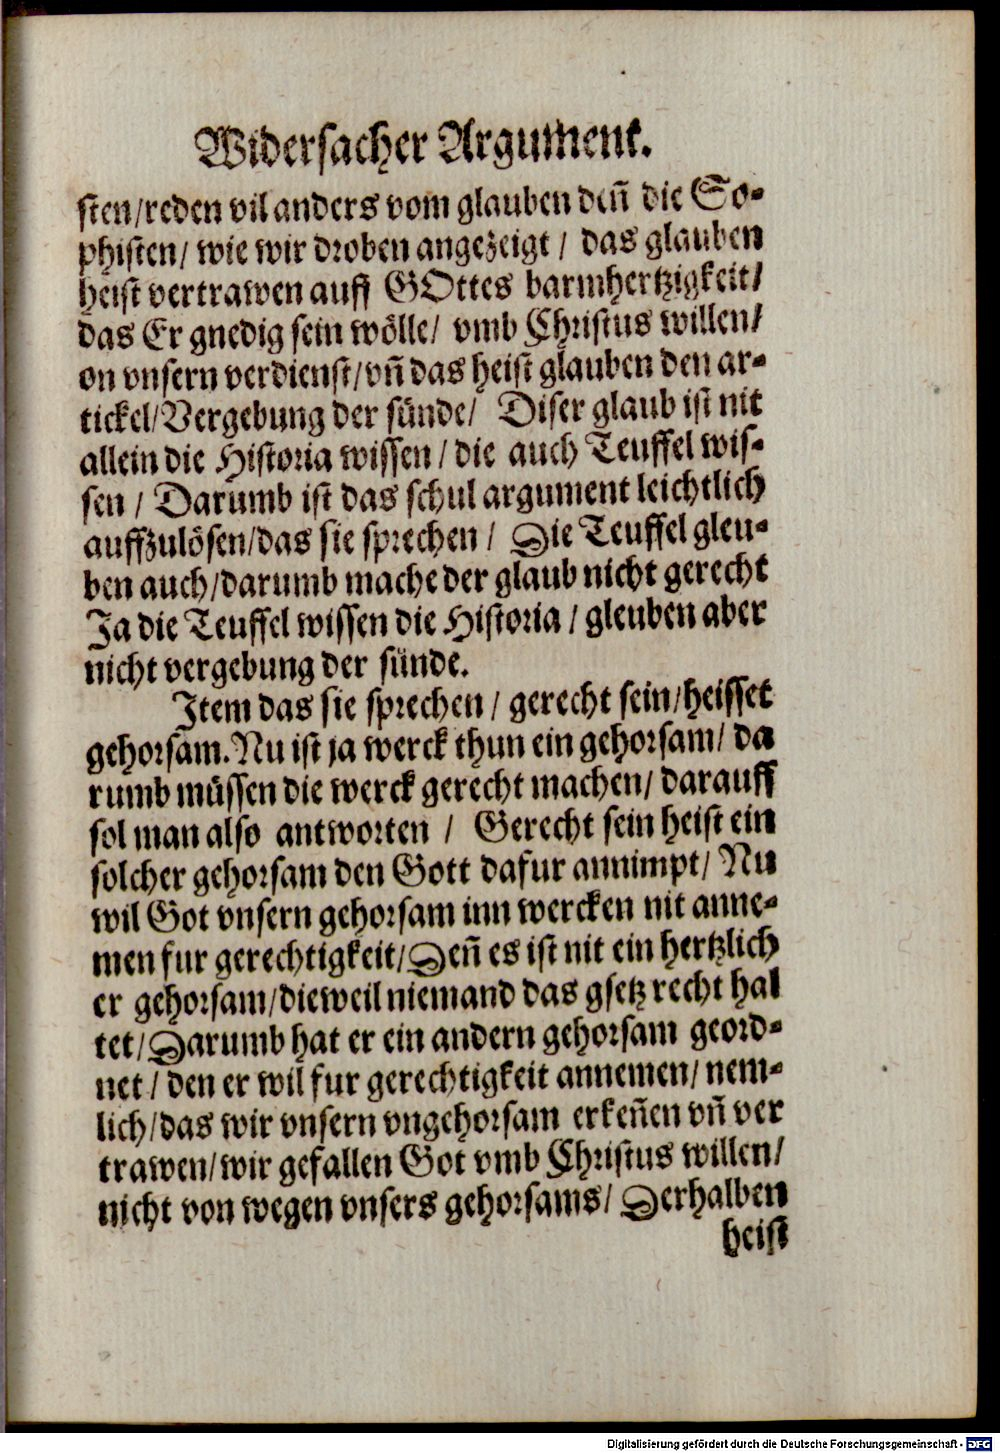 Widersacher Argument.
sten/reden vil anders vom glauben deñ die So-
phisten/ wie wir droben angezeigt / das glauben
heist vertrawen auff GOttes barmhertzigkeit/
das Er gnedig sein wölle/ vmb Christus willen/
on vnsern verdienst/vñ das heist glauben den ar-
tickel/Vergebung der sünde/ Diser glaub ist nit
allein die Historia wissen / die auch Teuffel wis-
sen / Darumb ist das schul argument leichtlich
auffzulösen/das sie sprechen / Die Teuffel gleu-
ben auch/darumb mache der glaub nicht gerecht
Ja die Teuffel wissen die Historia / gleuben aber
nicht vergebung der sünde.
Item das sie sprechen / gerecht sein/heisset
gehorsam. Nu ist ja werck thun ein gehorsam/ da
rumb müssen die werck gerecht machen/ darauff
sol man also antworten / Gerecht sein heist ein
solcher gehorsam den Gott dafur annimpt/ Nu
wil Got vnsern gehorsam inn wercken nit anne-
men fur gerechtigkeit/Deñ es ist nit ein hertzlich
er gehorsam/dieweil niemand das gsetz recht hal
tet/Darumb hat er ein andern gehorsam geord-
net / den er wil fur gerechtigkeit annemen/ nem-
lich/das wir vnsern vngehorsam erkeñen vñ ver
trawen/wir gefallen Got vmb Christus willen/
nicht von wegen vnsers gehorsams/ Derhalben
heist
Digitalisierung gefördert durch die Deutsche Forschungsgemeinschaft - DFG